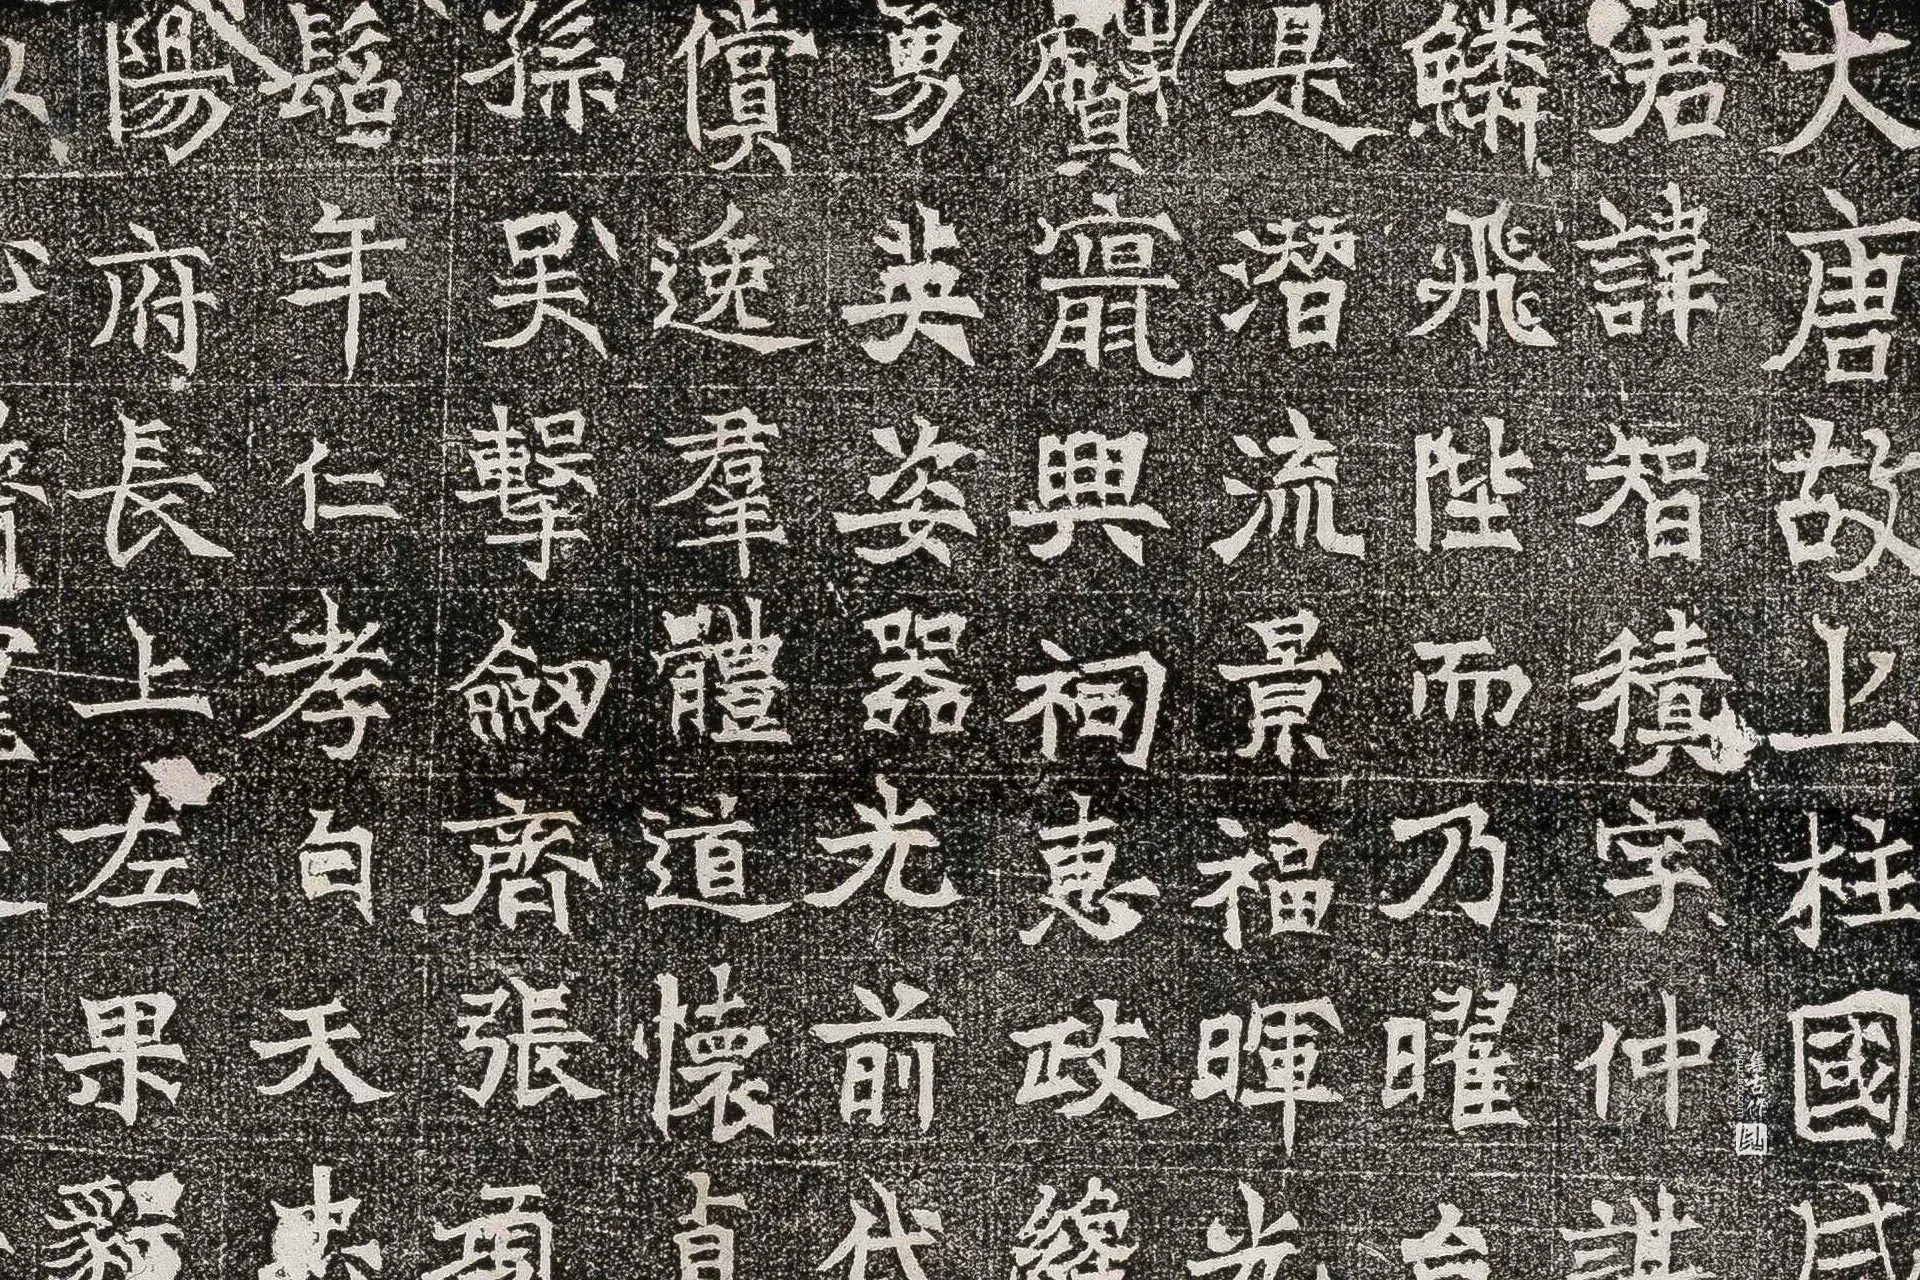 大唐故上柱國
君諱智積字仲
鱗飛陛而乃曜台
是潛流景福暉光
興祠惠政
勇英姿器光前代
償逸羣體道懷貞
孫吳擊劒齊張
髫年仁孝自天忠
陽府長上左果毅